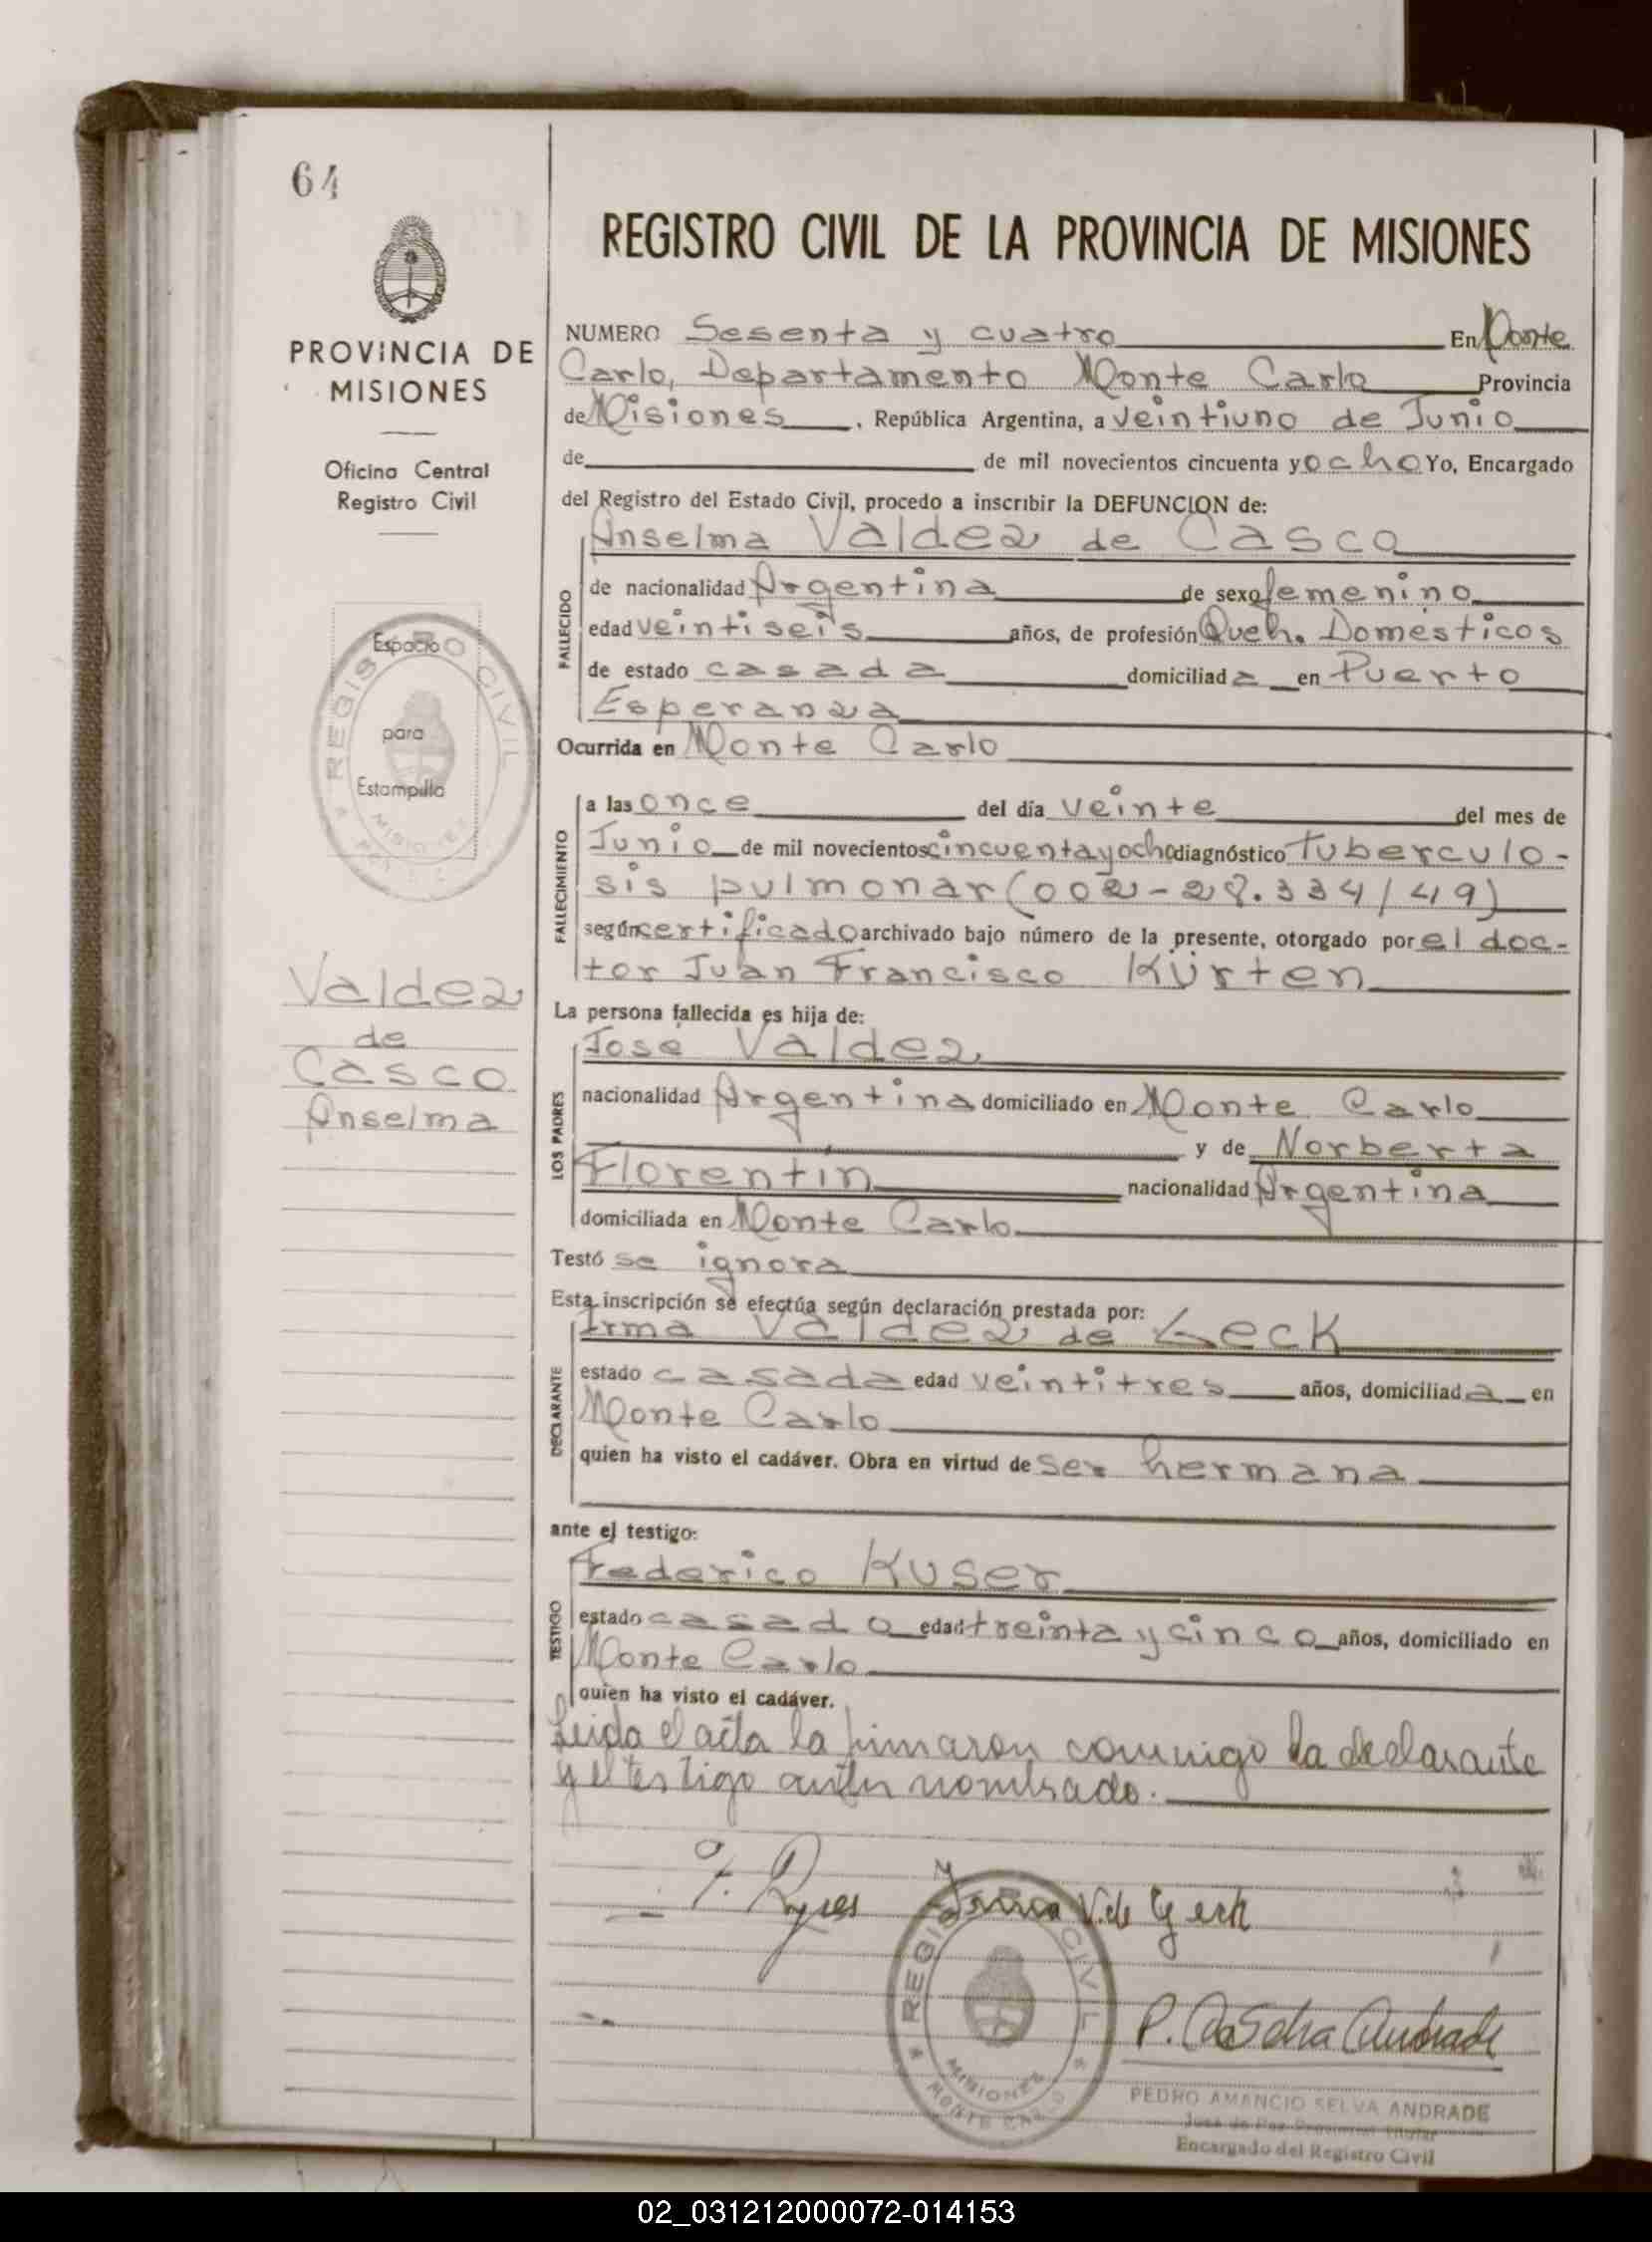 64
PROVINCIA DE
MISIONES
Oficina Central
Registro Civil
Espacio
para
Estampilla
REGISTRO CIVIL
MISIONES
Valdez
de
Casco
Anselma
REGISTRO CIVIL DE LA PROVINCIA DE MISIONES
NUMERO Sesenta y cuatro En Monte
Carlo, Departamento Monte Carlo Provincia
de Misiones, República Argentina, a veintiuno de Junio
de de mil novecientos cincuenta y ocho Yo, Encargado
del Registro del Estado Civil, procedo a inscribir la DEFUNCION de:
Anselma Valdez de Casco
FALLECIDO
de nacionalidad Argentina de sexo femenino
edad veintiseis años, de profesión Queh. Domésticos
de estado casada domiciliada en Puerto
Esperanza
Ocurrida en Monte Carlo
FALLECIMIENTO
a las once del día veinte del mes de
Junio de mil novecientos cincuenta y ocho diagnóstico Tuberculo-
sis pulmonar (002-28.334/49)
según certificado archivado bajo número de la presente, otorgado por el doc-
tor Juan Francisco Kürten
La persona fallecida es hija de:
LOS PADRES
José Valdez
nacionalidad Argentina domiciliado en Monte Carlo
y de Norberta
Florentín nacionalidad Argentina
domiciliada en Monte Carlo
Testó se ignora
Esta inscripción se efectúa según declaración prestada por:
DECLARANTE
Irma Valdez de Geck
estado casada edad veintitres años, domiciliada en
Monte Carlo
quien ha visto el cadáver. Obra en virtud de ser hermana
ante el testigo:
TESTIGO
Federico Kuser
estado casado edad treinta y cinco años, domiciliado en
Monte Carlo
quien ha visto el cadáver.
Leida el acta la firmaron conmigo la declarante
y el testigo antes nombrado.
Irma V. de Geck
REGISTRO CIVIL
MISIONES
MONTE CARLO
P. Selva Andrade
PEDRO AMANCIO SELVA ANDRADE
Juez de Paz Provincial Titular
Encargado del Registro Civil
02_031212000072-014153